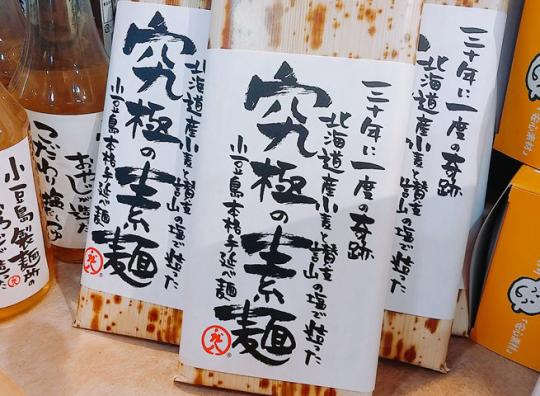 小豆島製麺所の
こだわり
北海道産小麦と
の塩で造った
究極の素麺
小豆島本格手延べ麺
三十年に一度の奇跡
北海道産小麦と讃岐
山の塩で造った
究極の素麺
小豆島本格手延べ麺
三十年に一度の奇跡
北海道産小麦と讃岐
山の塩で造った